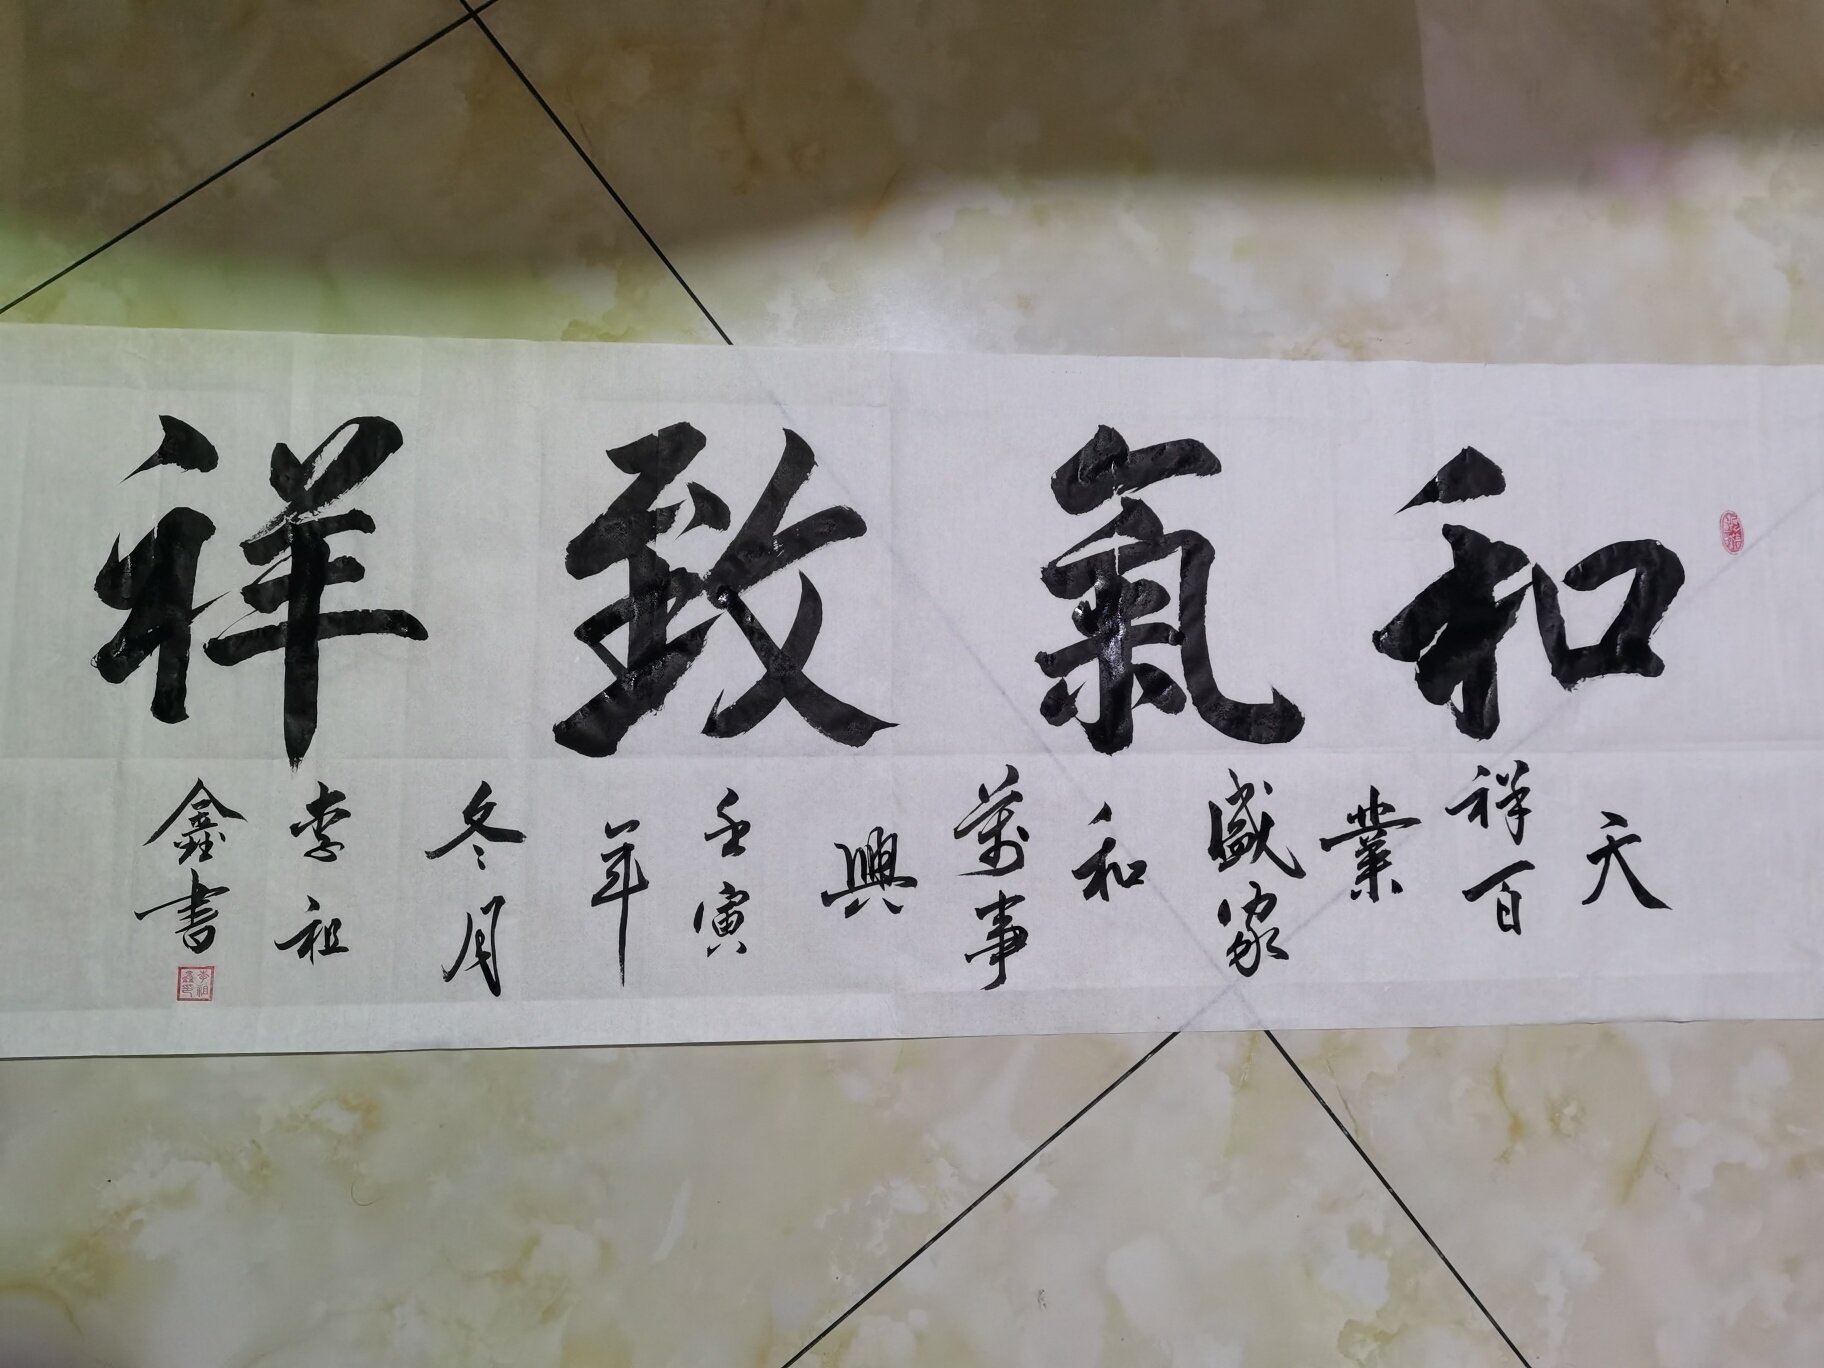 和氣致祥
天
祥百
業
盛家
和
萬事
興
壬寅
年
冬月
李祖
鑫書
李祖鑫印